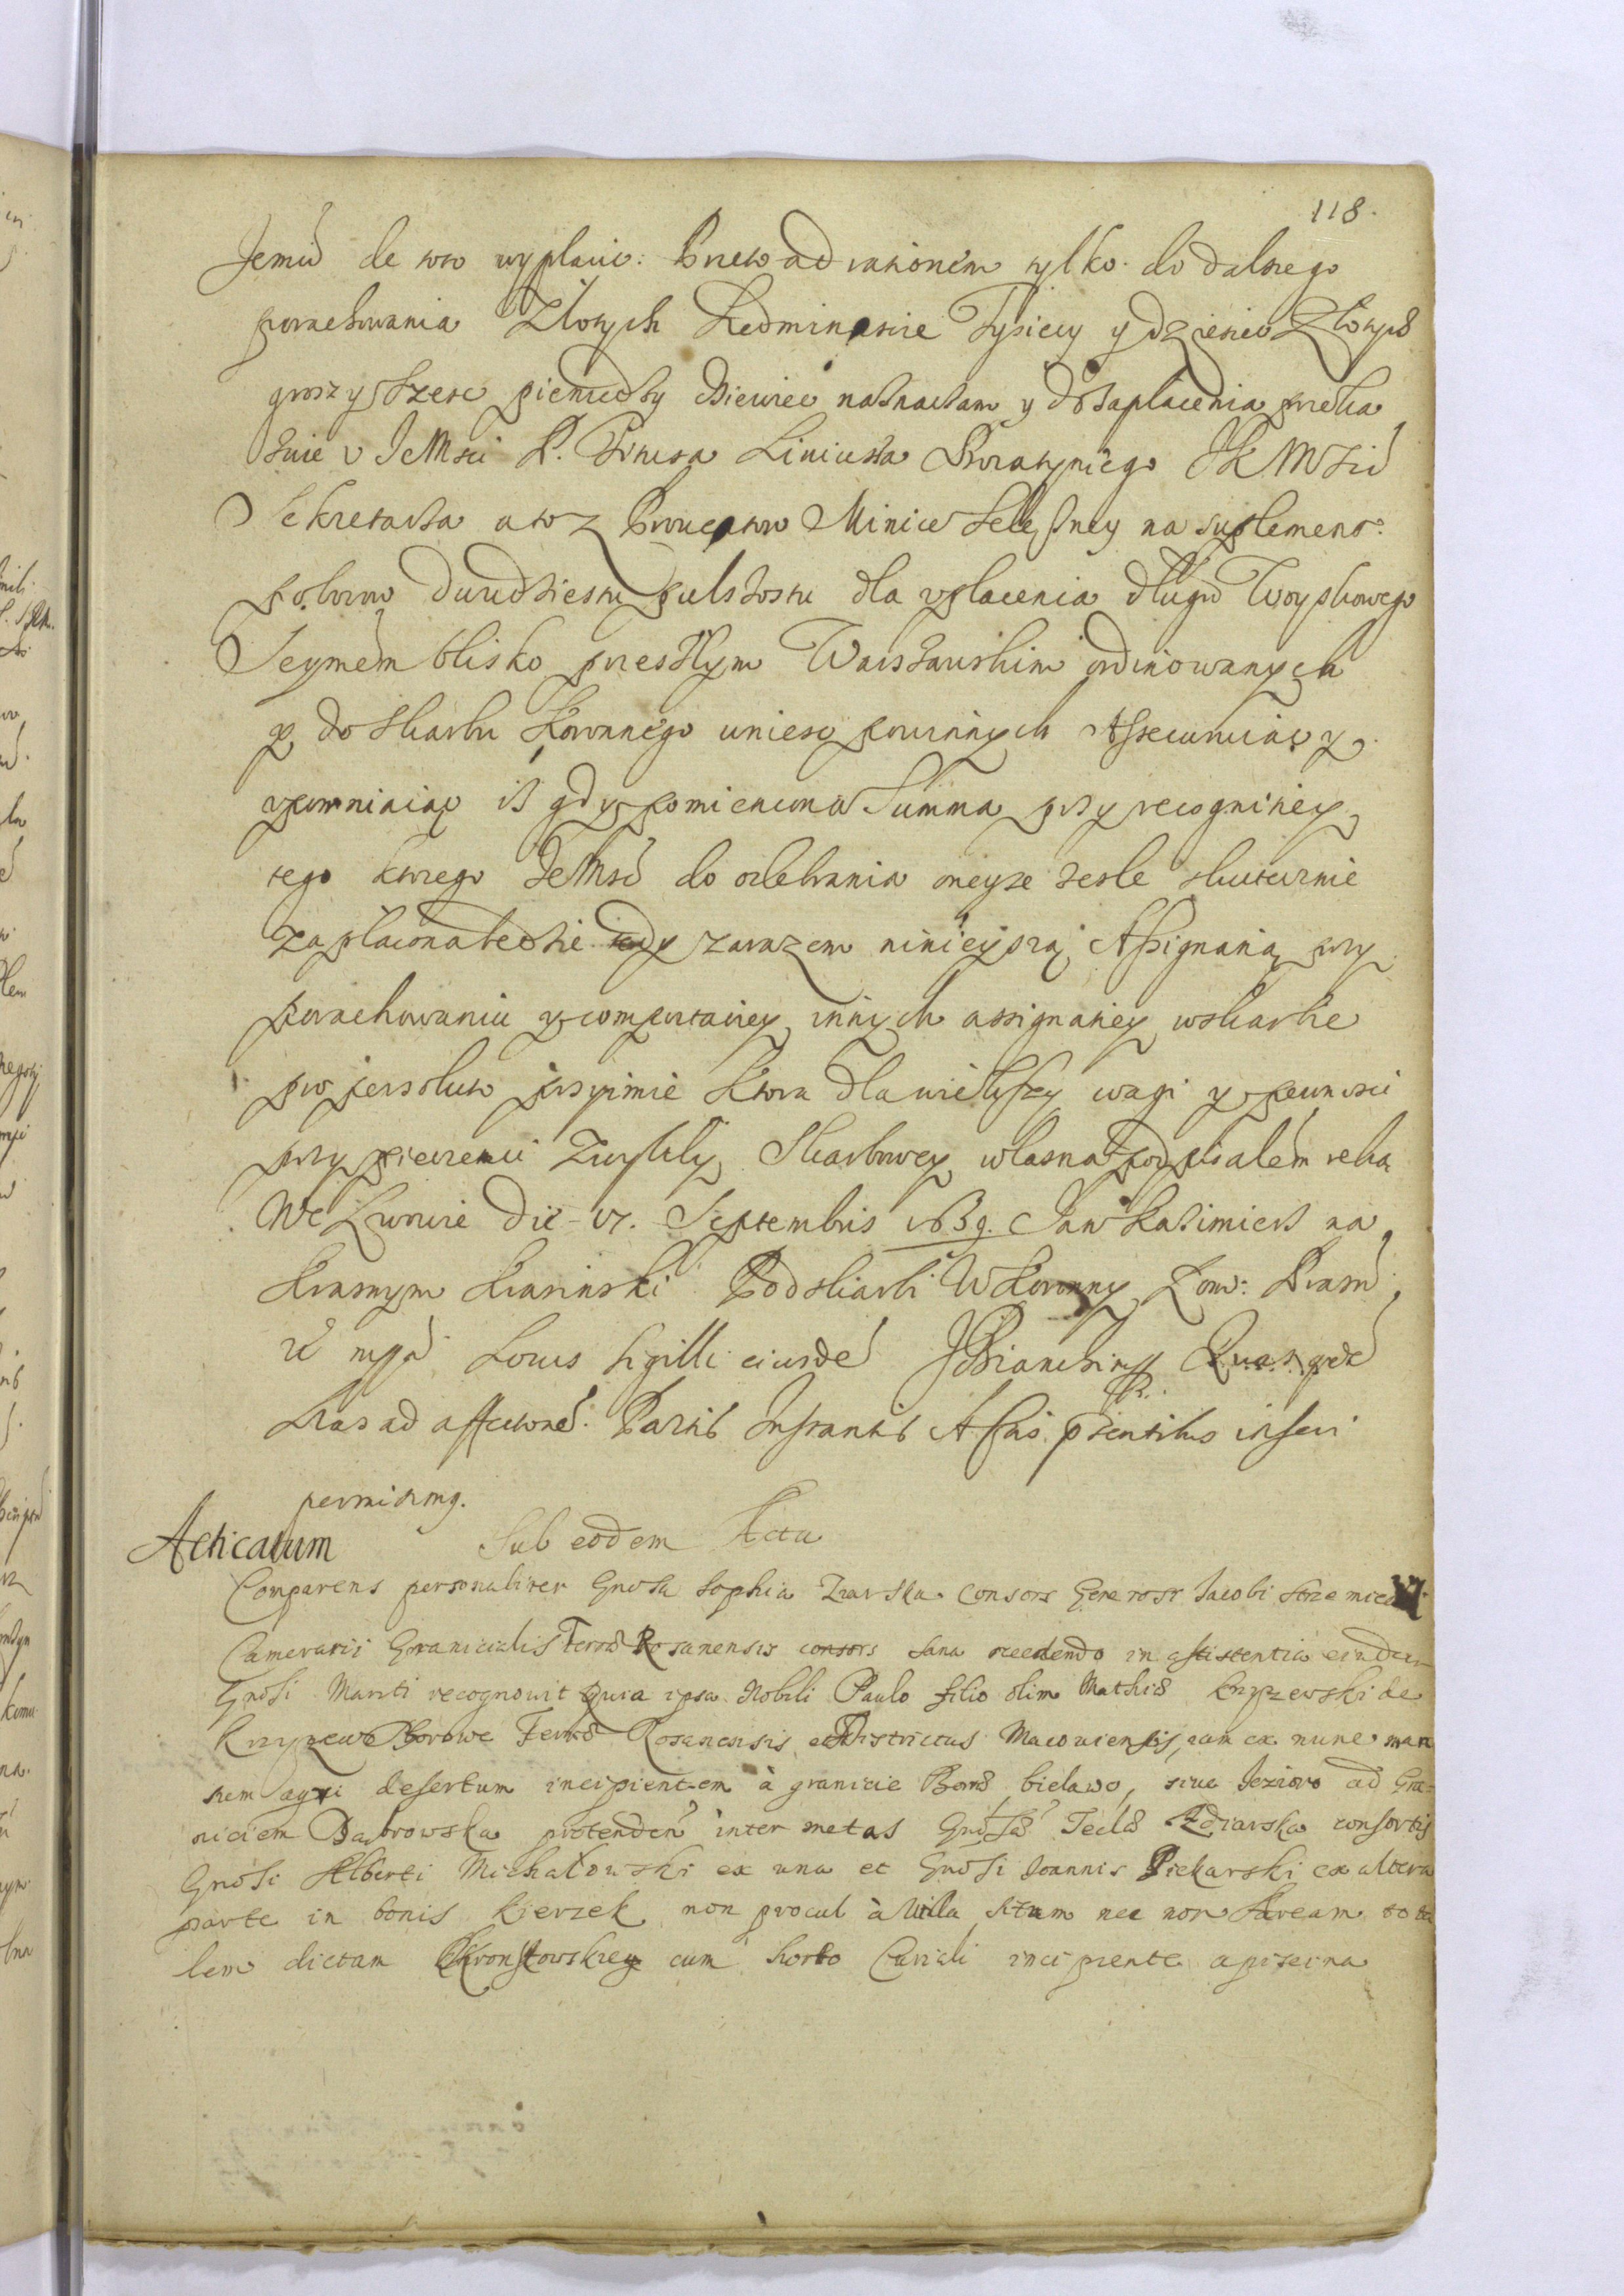 118.
Jemu de wypłaiic: Przeto ad rationem tylko do dalszego
porachowania Złotych Siedminascie Tysiecy y dziesiec Złotych
groszy szesc pieniedzy dziewiec naznaczam y do zaplacenia przeka
zuie v JeMsci P. JKMsci
Sekretarza a to z Minice na suplement:
poborow dwudziestu pułszostu dla vplacenia długu Woyskowego
Seymem blisko przeszłym Warszawskim ordinowanych
y do Skarbu Koronnego uniesc powinnych Assecuruiąc y
vpewniaiąc iż gdy pomieniona Summa przy recogniciey
tego ktorego JeMsc do odebrania oneyze zesle skutecznie
zapłacona bedzie tedy zarazem ninieyszą Assignatią przy
porachowaniu y comportaciey innych assignatiey w skarbie
pro persoluto przyimie Ktora dla wiekszey wagi y pewnosci
przy pieczeci Zwykłey Skarbowey własną podpisałem reką
We Lwowie die 17. Septembris 1659. Jan Kazimierz na
Krasnym Krasinski Podskarbi W Koronny Łom: Prasn
mpa Locus Sigilli eiusde Quas quide
Lras ad affectatione Partis Instantis Actis pntibus inseri
permisimq.
Acticatum Sub eodem Actu
Comparens personaliter Gnosa Sophia Zdiarska Consors Generosi Jacobi Strzemiecki
Camerarii Granicialis Terrae Rosanensis consors sana recedendo in assistentia eiusdem
Gnosi Mariti recognovit quia ipsa Nobili Paulo filio olim Mathiae Krzyzewski de
Krzyzewo Borowe Terrae Rosanensis et Districtus Macoviensis, iam ex nunc man
sem agri desertum incipientem à granicie Bonorum bielawo, siue Jezioro ad Gra=
niciem Dąbrowska protenden inter metas Gnosae Teclae Zdziarska consortis
Gnosi Alberti Michałowski ex una et Gnosi Joannis Piekarski ex altera
parte in bonis Kierzek non procul à Villa sitam nec non Aream tota
lem dictam Chronstowskie cum horto Curiali incipiente a piscina